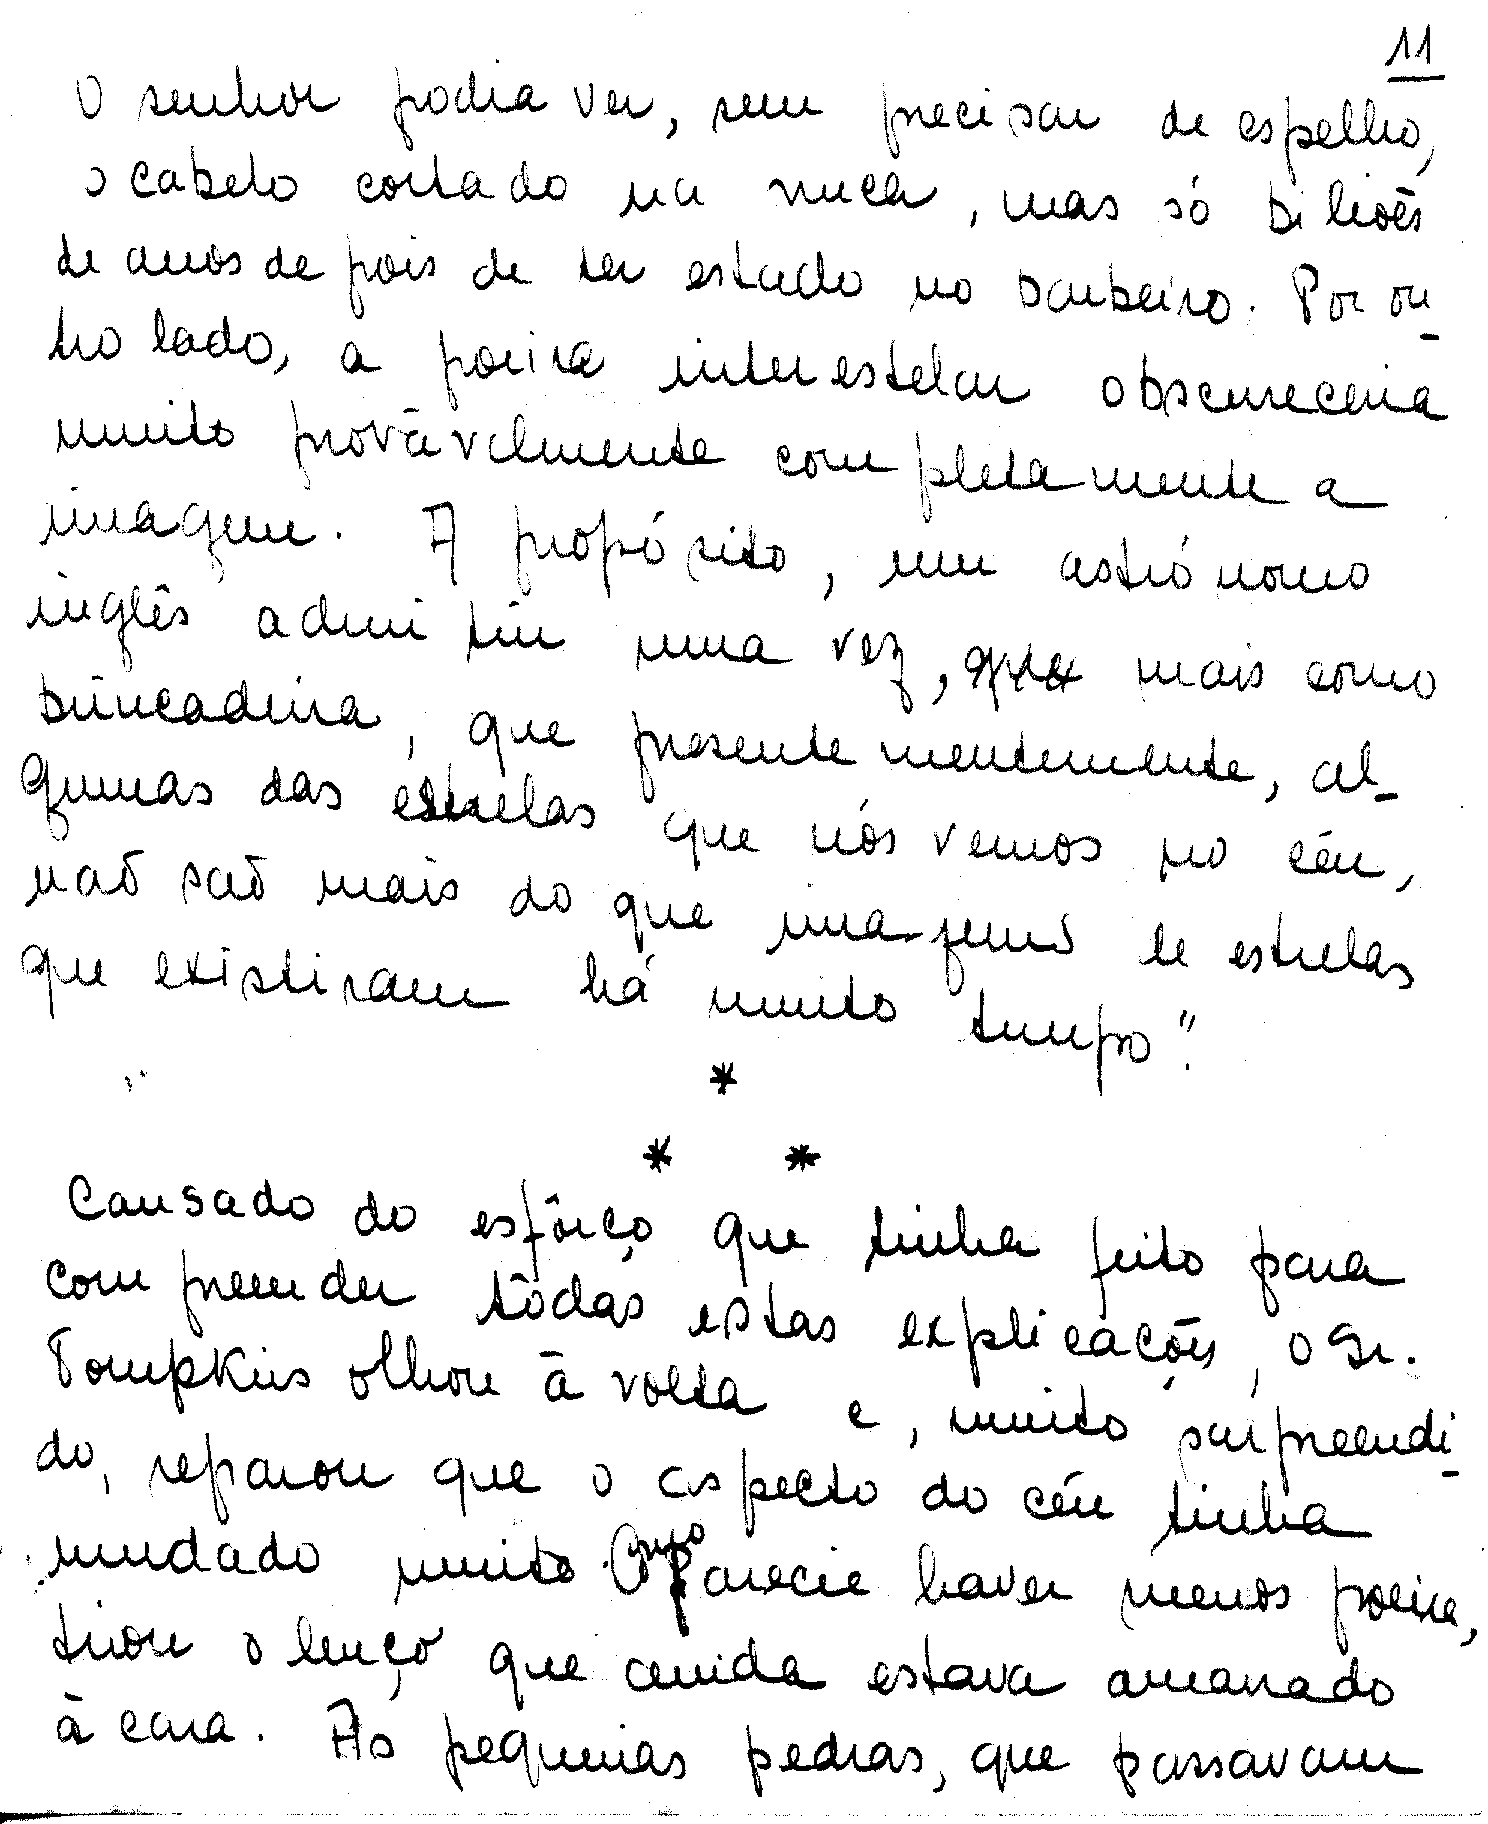 11
O senhor podia ver, sem precisar de espelho,
o cabelo cortado na nuca, mas só biliões
de anos depois de ter estado no barbeiro. Por ou-
tro lado, a poeira interestelar obscureceria
muito provàvelmente completamente a
imagem. A propósito, um astrónomo
inglês admitiu uma vez, mais como
brincadeira, que presentementemente, al-
gumas das estrelas que nós vemos no céu,
não são mais do que imagens de estrelas
que existiram há muito tempo".
*
* *
Cansado do esfôrço que tinha feito para
compreender tôdas estas explicações, o Sr.
Tompkins olhou à volta e, muito surpreendi-
do, reparou que o aspecto do céu tinha
mudado muito. Como parecia haver menos poeira,
tirou o lenço que ainda estava amarrado
à cara. As pequenas pedras, que passavam